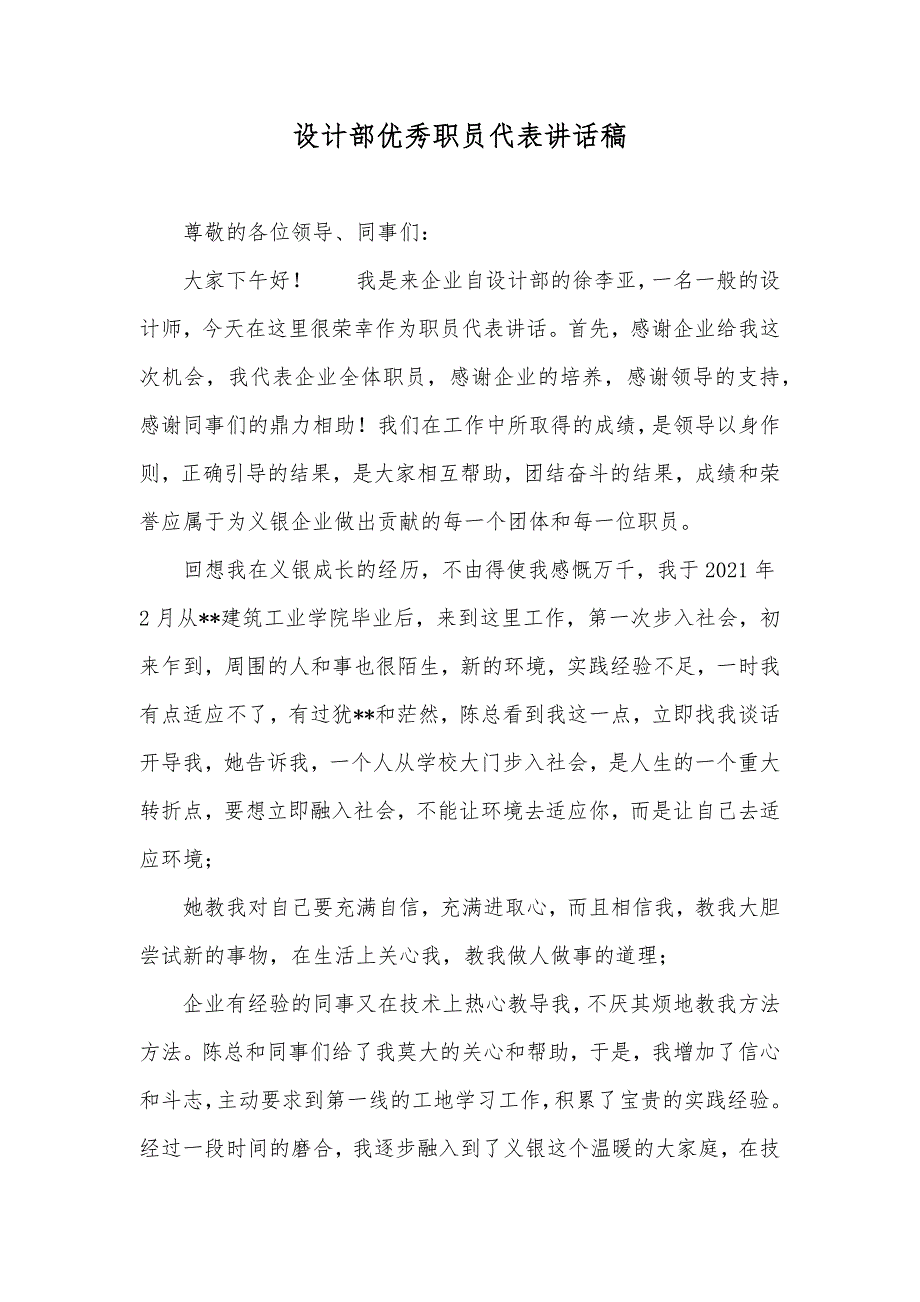 设计部优秀职员代表讲话稿
尊敬的各位领导、同事们：
大家下午好！　　我是来企业自设计部的徐李亚，一名一般的设
计师，今天在这里很荣幸作为职员代表讲话。首先，感谢企业给我这
次机会，我代表企业全体职员，感谢企业的培养，感谢领导的支持，
感谢同事们的鼎力相助！我们在工作中所取得的成绩，是领导以身作
则，正确引导的结果，是大家相互帮助，团结奋斗的结果，成绩和荣
誉应属于为义银企业做出贡献的每一个团体和每一位职员。
回想我在义银成长的经历，不由得使我感慨万千，我于 2021 年
2 月从**建筑工业学院毕业后，来到这里工作，第一次步入社会，初
来乍到，周围的人和事也很陌生，新的环境，实践经验不足，一时我
有点适应不了，有过犹**和茫然，陈总看到我这一点，立即找我谈话
开导我，她告诉我，一个人从学校大门步入社会，是人生的一个重大
转折点，要想立即融入社会，不能让环境去适应你，而是让自己去适
应环境；
她教我对自己要充满自信，充满进取心，而且相信我，教我大胆
尝试新的事物，在生活上关心我，教我做人做事的道理；
企业有经验的同事又在技术上热心教导我，不厌其烦地教我方法
方法。陈总和同事们给了我莫大的关心和帮助，于是，我增加了信心
和斗志，主动要求到第一线的工地学习工作，积累了宝贵的实践经验。
经过一段时间的磨合，我逐步融入到了义银这个温暖的大家庭，在技